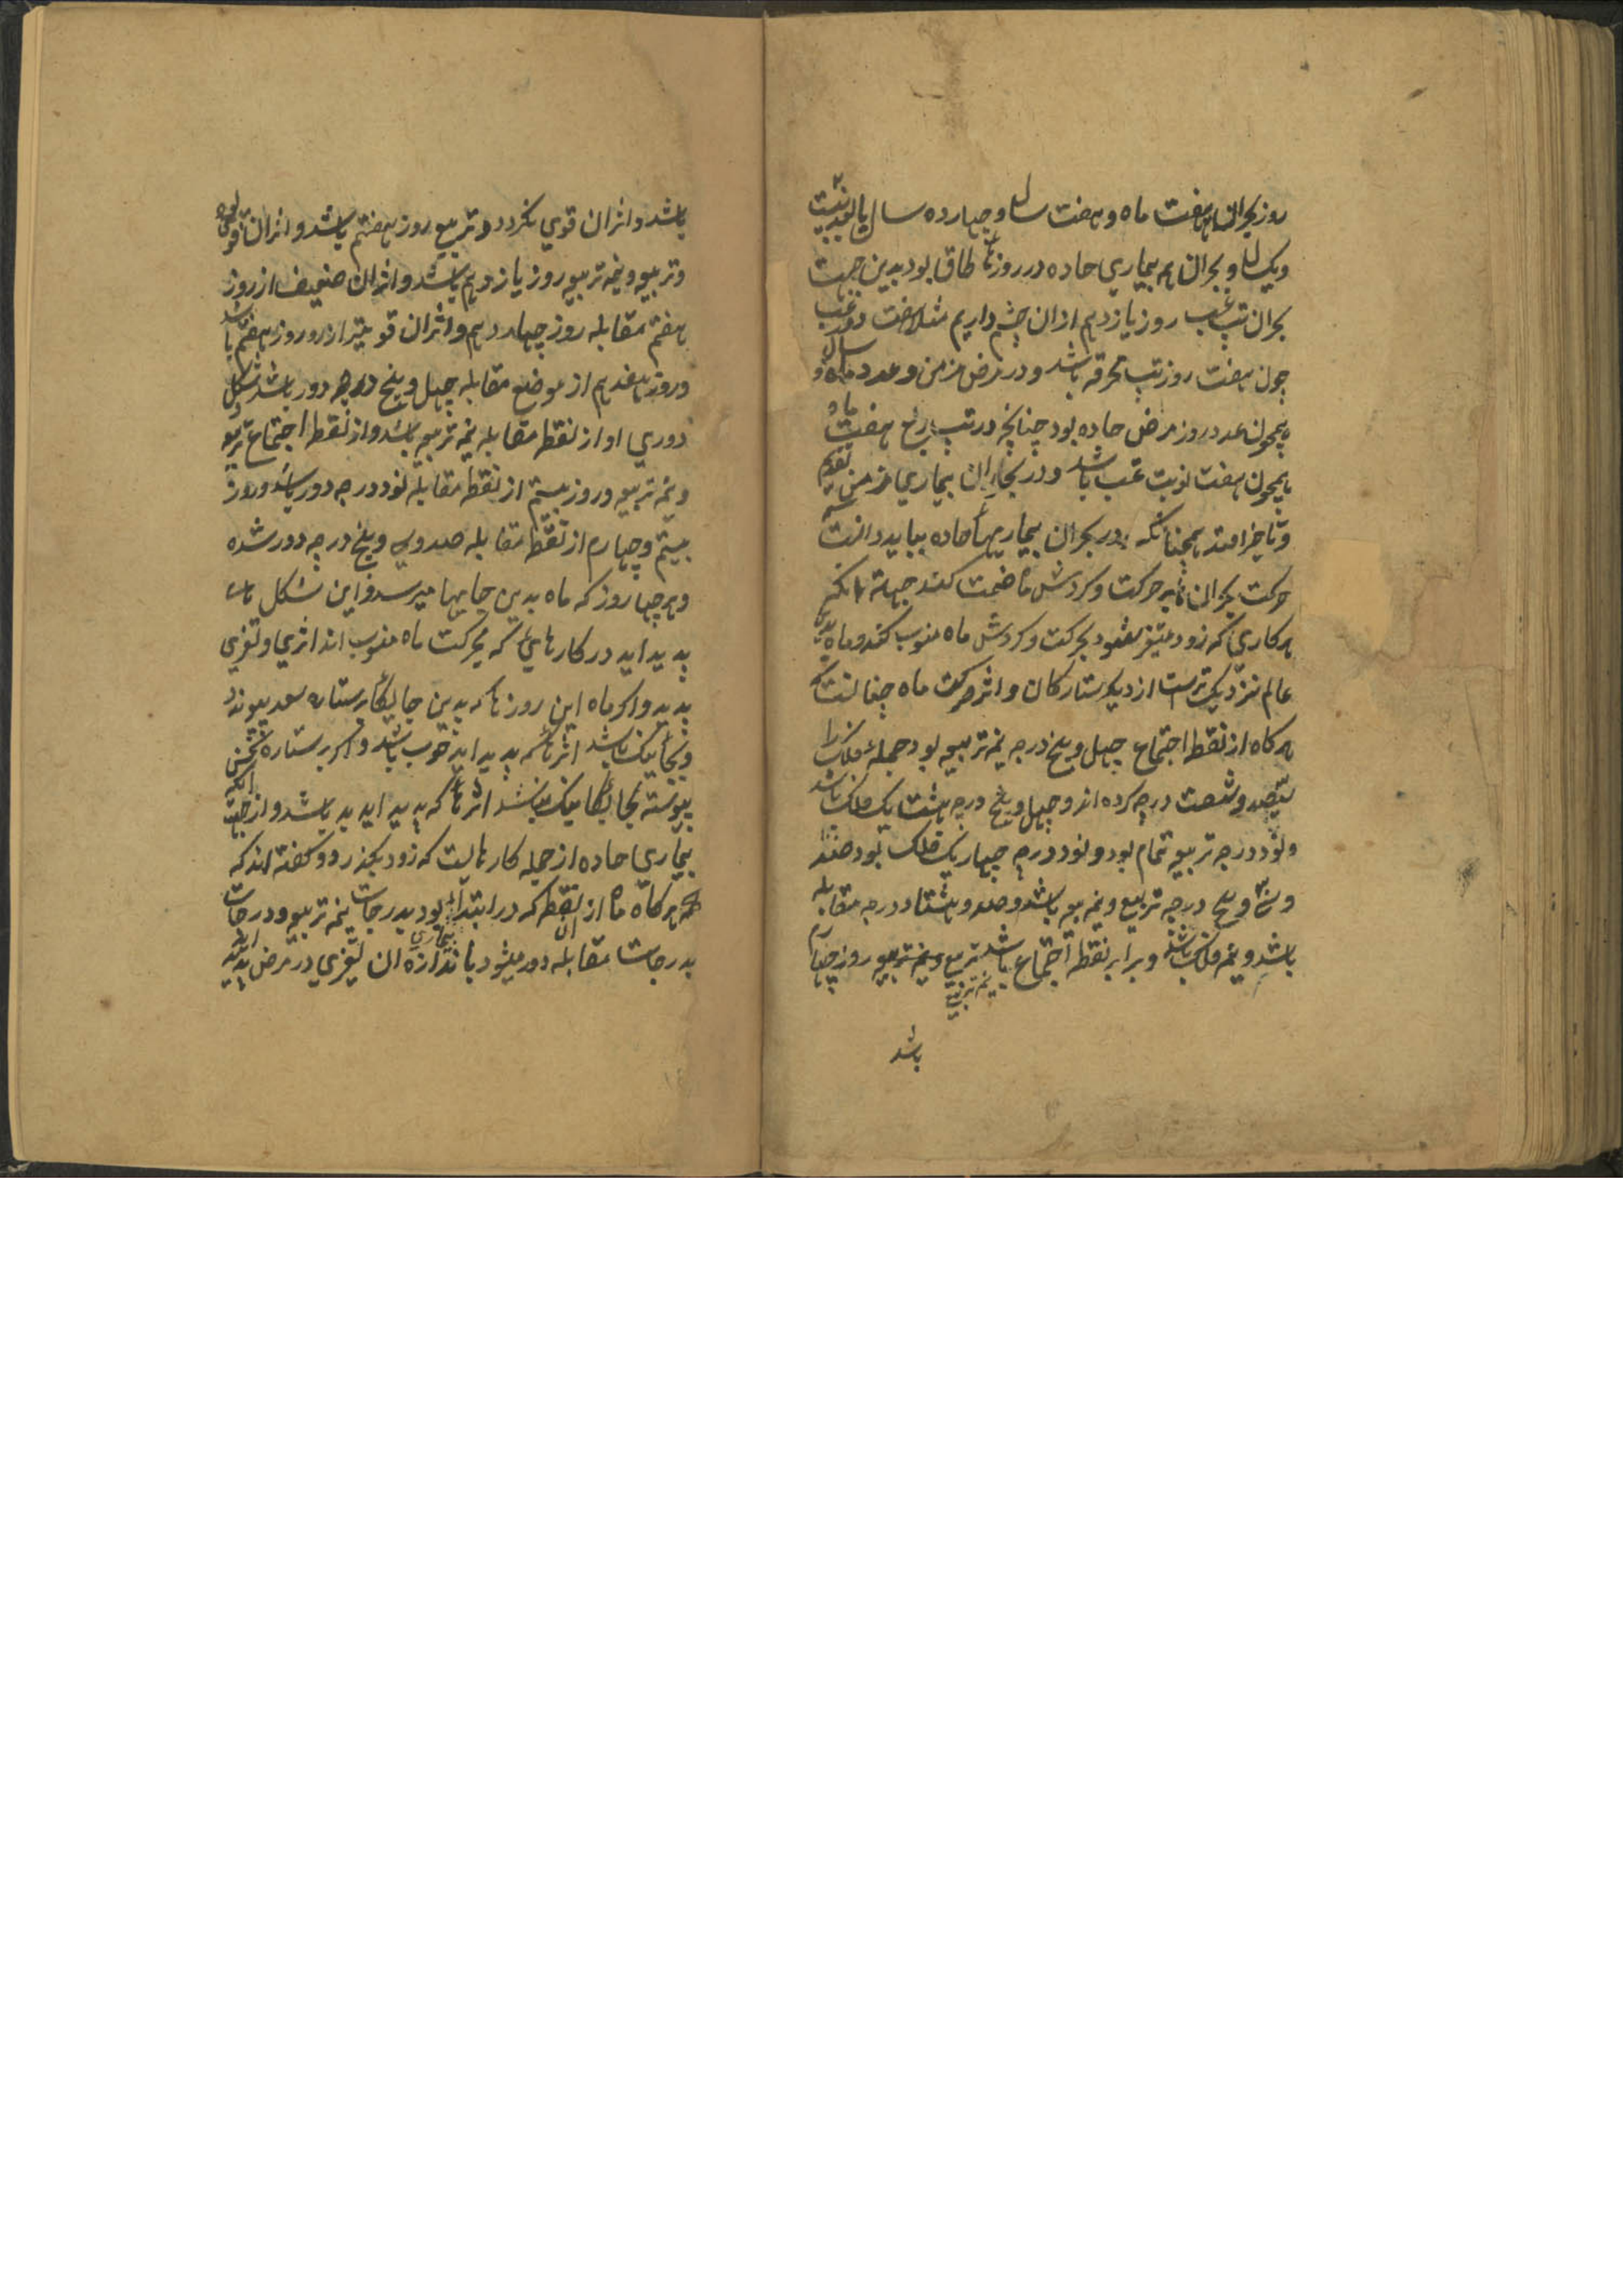 روز بحران هفت ماه و هفت سال و چهارده سال یا بود بیست
ویک سال و بحران هم بیماری حاده در روزها طاق بود بدین جهت
بحران تب غب روز یازدهم ازان چشم داریم مثلا هفت دور غب
چون هفت روز تب محرقه باشد و در مرض مزمن و عدد ماه و سال
همچون عدد روز مرض حاده بود چنانچه در تب ربع هفت ماه
همچون هفت نوبت غب باشد و در بحران بیماری مزمن تقدیم
و تاخیر افتد همچنانکه در بحران بیماریها حاده بباید دانست که
حرکت بحران ها بر حرکت و کردش ماه قسمت کنند جهة انکه
هر کاری که زود متغیر شود بحرکت و کردش ماه منسوب کنند و ماه بدین
عالم نزدیک ترست از دیکر ستارکان و اثر حرکت ماه چنانست که
هر کاه از نقطه اجتماع چهل و پنج درجه نیم تربیع بود جمله فلک را
سیصد و شصت درجه کرده اند و چهل و پنج درجه هشت یک فلک باشد
و نود درجه تربیع تمام بود و نود درجه چهار یک فلک بود صد
و سی و پنج درجه تربیع و نیم تربیع باشد و صد و هشتاد درجه مقابله
باشد و نیم فلک باشد و برابر نقطه اجتماع باشد تربیع و نیم تربیع روز چهارم
نیم تربیع
باشد
باشد و اثر ان قوی نکردد و تربیع روز هفتم باشد و اثر ان قوی بود
و تربیع و نیم تربیع روز یازدهم باشد و اثر ان ضعیف از روز
هفتم مقابله روز چهاردهم و اثر ان قوی تر از روز هفتم باشد
و روز هفدهم از موضع مقابله چهل و پنج درجه دور باشد شکل
دوری او از نقطه مقابله نیم تربیع باشد و از نقطه اجتماع تربیع
و نیم تربیع و روز بیستم از نقطه مقابله نود درجه دور باشد و روز
بیستم و چهارم از نقطه مقابله صد و سی و پنج درجه دور شده
و هر چهار روز که ماه بدین جایها میرسد و این شکل ها
پدید اید در کارهای که بحرکت ماه منسوب اند اثری و تغیری
پدید و اکر ماه این روزها که بدین جایکاه بر ستاره سعد پیوندد
و بجای نیک باشد اثرها که پدید اید خوب باشد و اکر بر ستاره نحس
پیوسته بجایکا نیک نباشد اثرها که پدید اید بد باشد و از جهت انکه
بیماری حاده از جمله کارهایست که زود بکذرد و کفته اند که
هر کاه ماه از ان نقطه که در ابتداء بیماری بود بدرجات نیم تربیع و درجات
بدرجات مقابله دور میشود باندازه ان تغیری در مرض پدید اید